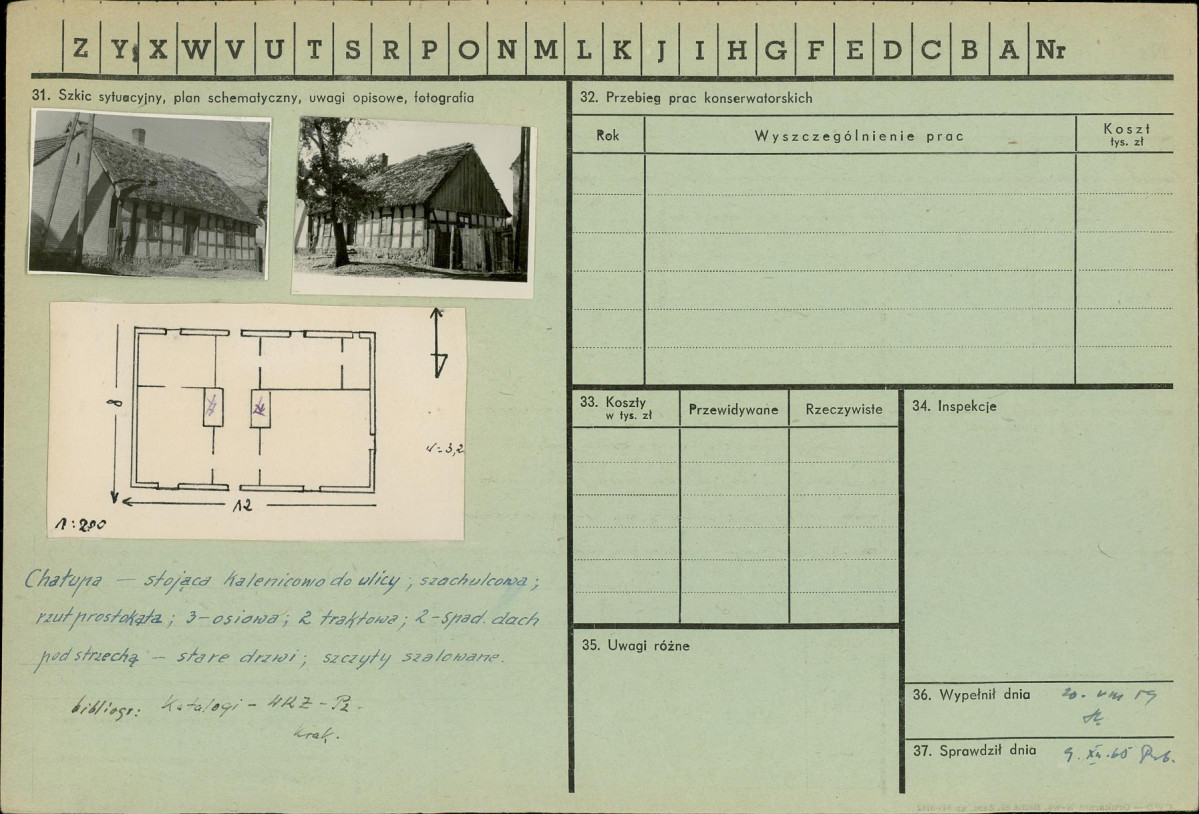 Z Y X W V U T S R P O N M L K J I H G F E D C B A Nr
31. Szkic sytuacyjny, plan schematyczny, uwagi opisowe, fotografia
8
12
1:200
Chałupa – stojąca kalenicowo do ulicy; szachulcowa;
rzut prostokąta; 3-osiowa; 2 traktowa; 2-spad. dach
pod strzechą – stare drzwi; szczyty szalowane.
bibliogr: Katalogi – WKZ – Pz.
32. Przebieg prac konserwatorskich
Rok
Wyszczególnienie prac
Koszt
tys. zł
33. Koszty
w tys. zł
Przewidywane
Rzeczywiste
34. Inspekcje
35. Uwagi różne
36. Wypełnił dnia 20. VIII 59
37. Sprawdził dnia 9. XII. 65